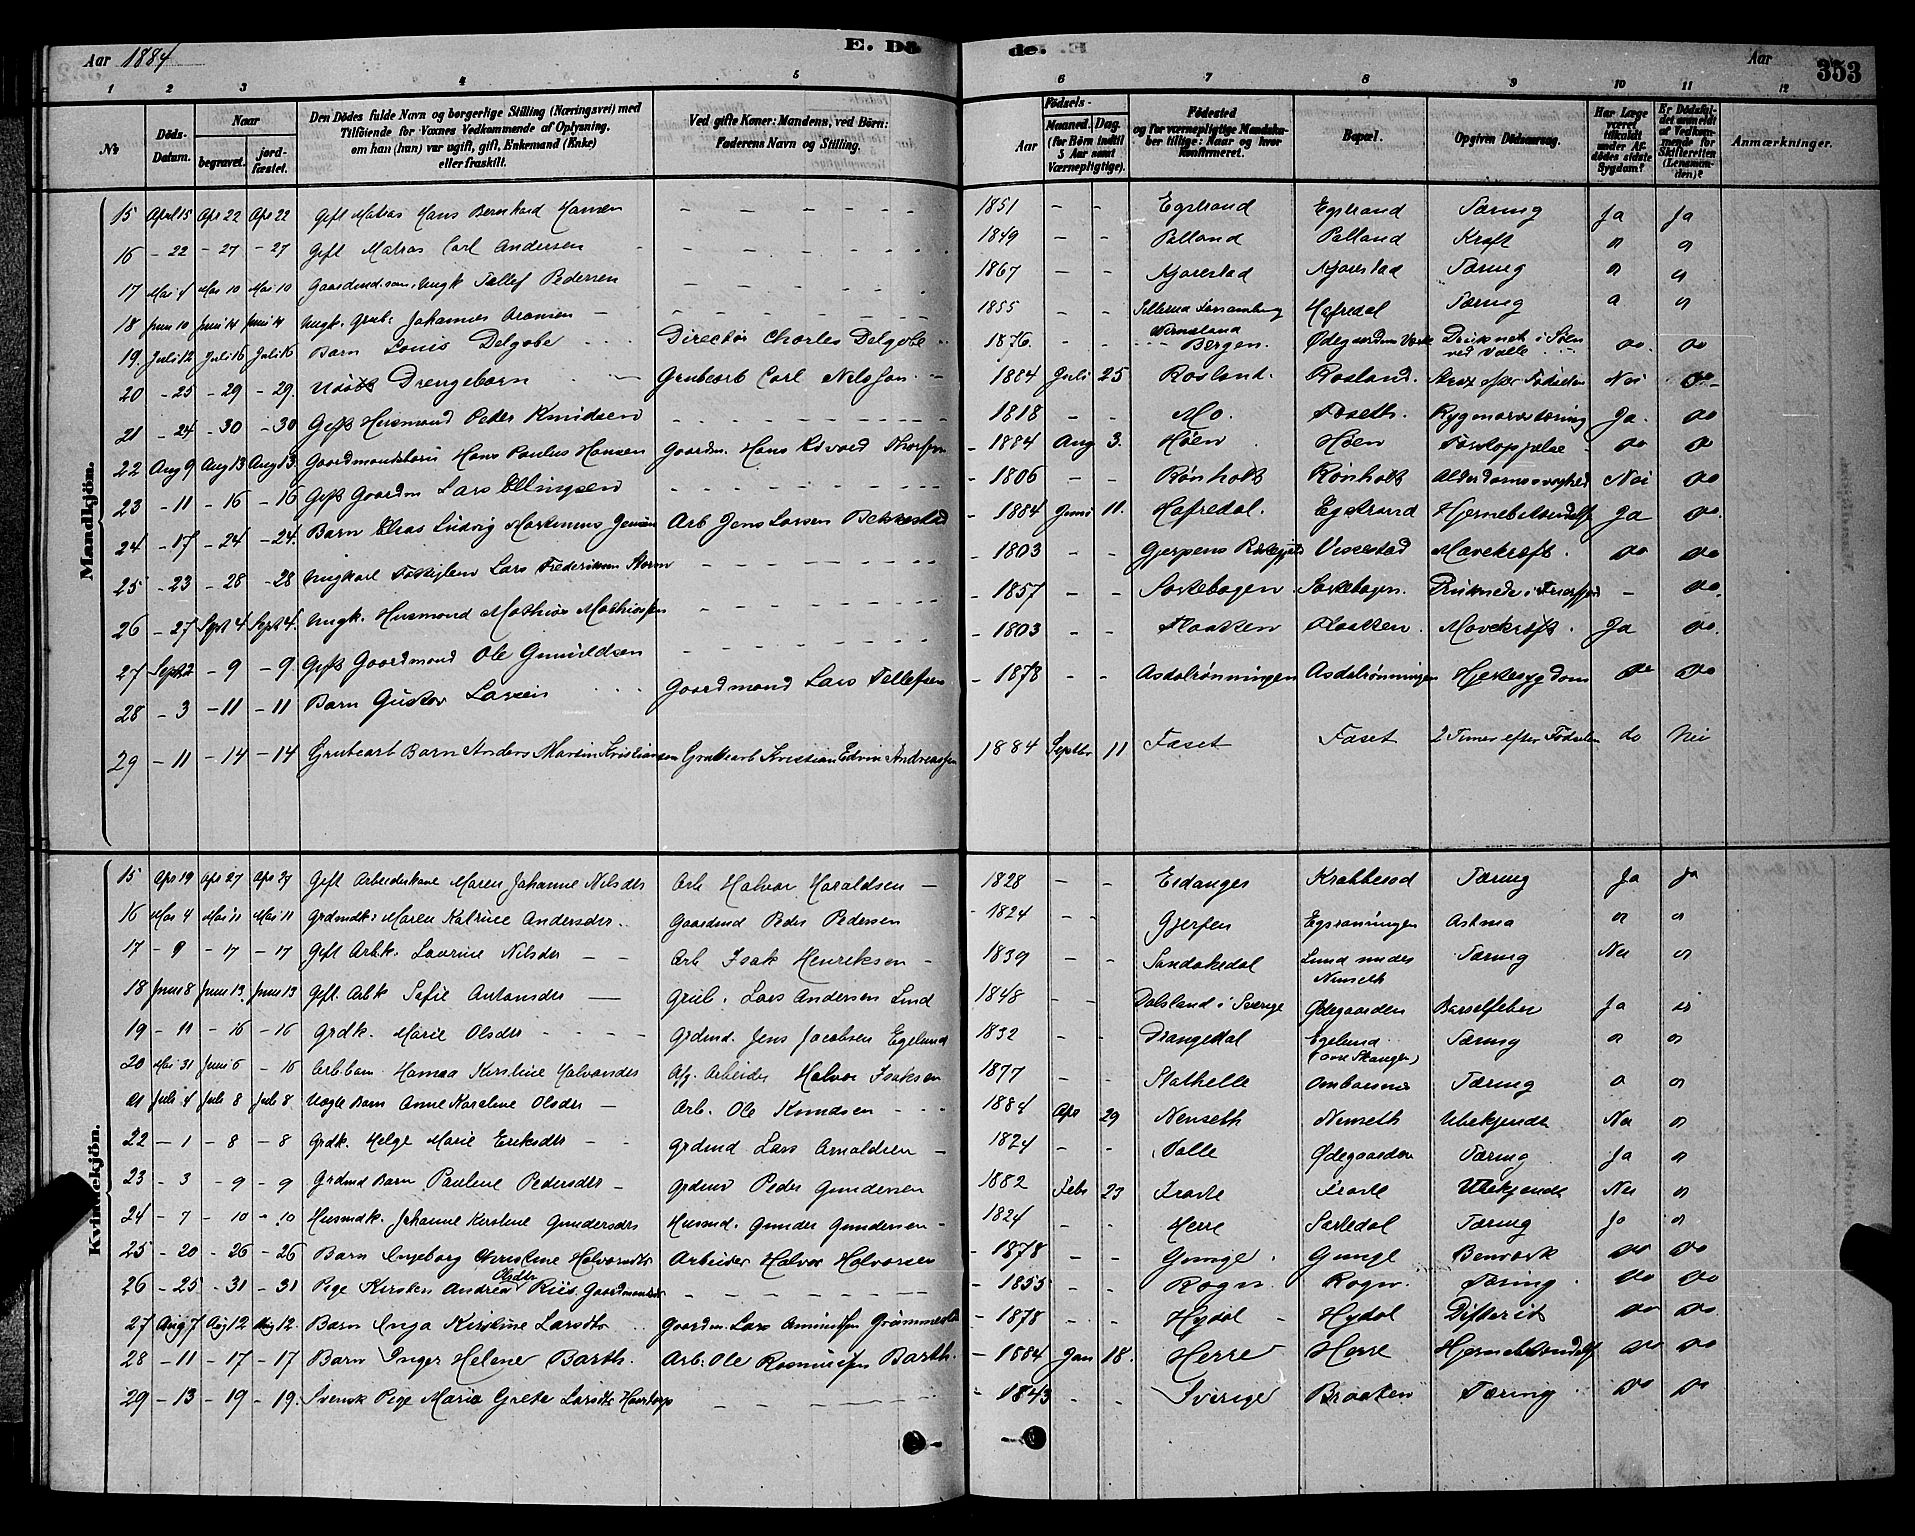 Aar 1884 E. Dö de. Aar 353
1 2 3 4 5 6 7 8 9 10 11 12
№ Döds-Datum. Naar begravet. jordfæstet. Den Dödes fulde Navn og borgerlige Stilling (Næringsvei) med Tilföiende for Voxnes Vedkommende af Oplysning, om han (hun) var ugift, gift, Enkemand (Enke) eller fraskilt. Ved gifte Koner: Mandens, ved Börn: Faderens Navn og Stilling. Födsels- Aar Maaned. Dag. (for Börn indtil 5 Aar samt Værnepligtige). Födested og for værnepligtige Mandskaber tillige: Naar og hvor konfirmeret. Bopæl. Opgiven Dödsaarsag. Har Læge været tilkaldt under Afdödes sidste Sygdom? Er Dödsfaldet anmeldt af Vedkommende for Skifteretten (Lensmanden)? Anmærkninger.
Mandkjön.
15 April 15 Apr 22 Apr 22 Gift Matros Hans Bernhard Hansen - - - 1851 - - Egstrand Egstrand Tæring Ja Ja
16 - 22 - 27 - 27 Gift Matros Carl Andersen - 1849 - - Palland Palland Kræft " "
17 Mai 4 Mai 10 Mai 10 Gaardmd.søn, Ungk Tellef Pedersen - - - 1867 - - Kjørestad Kjørestad Tæring " "
18 Juni 10 Juni 14 Juni 14 Ungk. Grub: Johannes Aronsen - - - 1855 - - Hafredal Tæring " "
19. Juli 12 Juli 16 Juli 16 Barn Louis Delgobe Director Charles Delgobe 1876 - - Bergen. Ødegaardens Værk Druknet i Søen ved Valle Do Do
20 - 25 - 29 - 29. Udøbt Drengebarn Grubearb Carl Nilssen 1884 Juli 25 Rosland. Rosland. Strax efter Fødselen Nei Do
21 - 24 - 30 - 30 Gift Husmand Peder Knudsen - - - 1818 - - Mo. Foseth. Rygmarvstæring Ja. Do
22 Aug 9 Aug 13 Aug 13. Gaardmandsbarn Hans Paulus Hansen Gaardm. Hans Edvard 1884 Aug 3. Høen Høen Forstoppelse Do Do
23 - 11 - 16 - 16 Gift Gaardm Lars Ellingsen - - - 1806 - - Rønholt Rønholt Alderdomssvaghed Nei Do
24 - 17 - 24 - 24. Barn Elias Ludvig Martinius Jensen Arb Jens Larsen Bekkestad 1884 Juni 11. Hafredal. Egstrand Hjernebetændelse Ja Do.
25 - 23 - 28 - 28 Ungkarl Lars Frederiksen Storm - - - 1803 - - Gjerpens Vissestad Mavekræft. Do Do
26 - 27 Sept 4 Sept 4. Ungk. Husmand Mathias Mathiassen - - - 1857 - - Saltebogen Saltebogen. Druknede i Frierfjord - Do
27 Sept 2 - 9 - 9. Gift Gaardmand Ole Gunuldsen - - - 1803 - - Flaatten Flaatten. Mavekræft. Ja Do.
28 - 3 - 11 - 11 Barn Gustav Larsen Gaardmand Lars Tellefsen 1878 - - Asdalrønningen Asdalrønningen Hjertesygdom Do Do
29 - 11 - 14 - 14 Grubearb Barn Anders Martin Kristiansen Grubearb Kristian Edvin Andreassen 1884 Septbr 11 Foset Foset 2 Timer efter Fødselen do Nei
Kvindekjön.
15 Apr 19 Apr 27 Apr 27 Gift Arbeiderkone Maren Johanne Nilsdtr Arb Halvor Haraldsen - 1828 - - Eidanger Krabberød Tæring Ja Ja
16 Mai 4 Mai 11 Mai 11 Grdmdk: Maren Katrine Andersdtr. Gaardmd Peder Pedersen 1824 - - Gjerpen Egsrønningen Astma " "
17 - 9 - 17 - 17 Gift Arbk. Laurine Nilsdtr - - Arb Isak Henriksen - 1839 - - Sandøkedal Lund under Nenseth Tæring Nei "
18 Juni 8 Juni 13. Juni 13 Gift. Arbk Sofie Antonsdtr - Grub. Lars Andersen Lind 1848 - - Dalsland i Sverige Ødegaarden Barselfeber Ja "
19 - 11 - 16 - 16 Grdk. Marie Olsdtr - - - Grdmd. Jens Jacobsen Egelund 1832 - - Drangedal Egelund Tæring " "
20 Mai 31 Juni 6 - 16 Arb.barn Hanna Kirstine Halvorsdtr Arbeider Halvor Isaksen 1877 - - Stathelle Ombordsnes Tæring " "
21 Juli 4 Juli 8 Juli 8 Uægte Barn Anne Karoline Olsdtr - Arb. Ole Knudsen - - 1884 Apr 29 Nenseth Nenseth Ubekjendt Nei "
22 - 1 - 8 - 8 Grdk. Helge Marie Eriksdtr - - Grdmd Lars Arnoldsen - 1824 - - Valle Ødegaarden Tæring Ja "
23 - 3 - 9 - 9 Grdmd Barn Pauline Pedersdtr - Grdmd Peder Gundersen 1882 Febr 23 Ubekjendt Nei "
24 - 7 - 10 - 10 Husmdk. Johanne Kirstine Gundersdtr Husmd. Gunder Gundersen - 1824 - - Herre Tæring Ja "
25 - 20 - 26 - 26 Barn Ingeborg Christine Halvorsdtr Arbeider Halvor Halvorsen 1878 - - Gunge Gunge Benværk Do Do
26 - 25 - 31 - 31 Pige Kirsten Andrea Olsdtr Riis Gaardmandsdtr - - - 1855 - - Rogn. Rogn. Tæring. Do Do
27 Aug 7 Aug 12 Aug 12. Barn Inga Kirstine Larsdtr Gaardm. Lars 1878 - - Hydal Hydal Difterit Do Do
28 - 11 - 17 - 17 Barn Inger Helene Barth. Arb. Ole Rasmussen Barth. 1884 Jan 18. Herre Herre Hjernebetændelse Do Do
29 - 13 - 19 - 19. Svensk Pige Maria Greta Larsdtr - - - 1843 - - Sverige Braaten Tæring Do Do